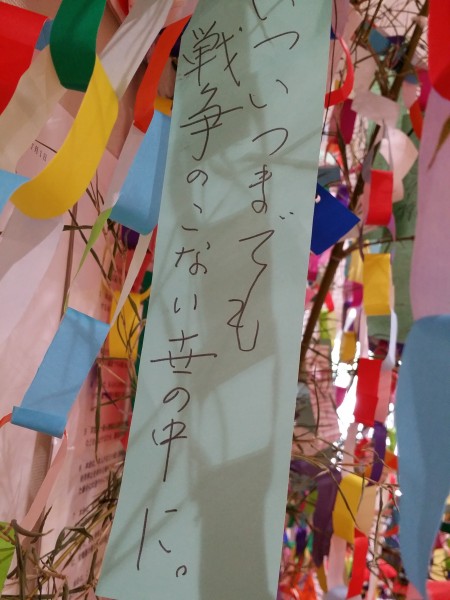 いついつまでも
戦争のこない世の中に。